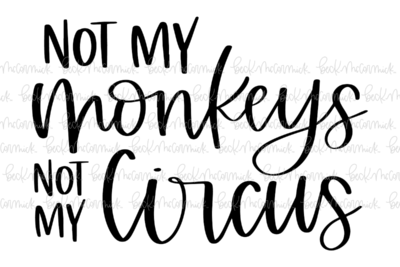 NOT MY
monkeys
NOT
MY
Circus